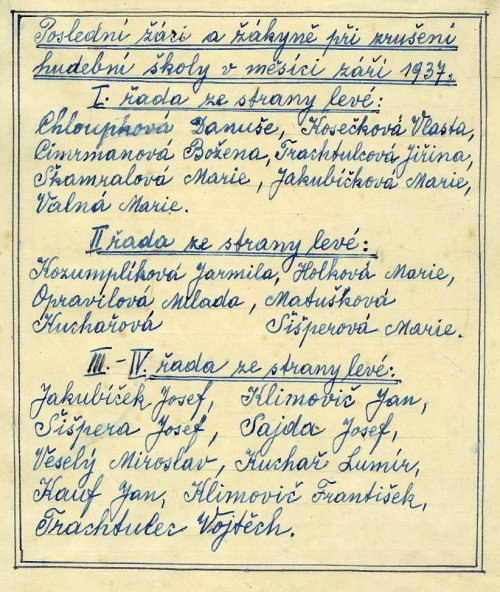 Poslední žáci a žákyně při zrušení
hudební školy v měsíci září 1937.
I. řada ze strany levé:
Chloupková Danuše, Kosečková Vlasta,
Cimrmanová Božena, Trachtulcová Jiřina,
Skamralová Marie, Jakubíčková Marie,
Valná Marie.
II řada ze strany levé:
Kozumplíková Jarmila, Holková Marie,
Opravilová Milada, Matušková
Kuchařová Šišperová Marie.
III.-IV. řada ze strany levé:
Jakubíček Josef, Klimovič Jan,
Šišpera Josef, Sajda Josef,
Veselý Miroslav, Kuchař Lumír,
Kauf Jan, Klimovič František,
Trachtulec Vojtěch.